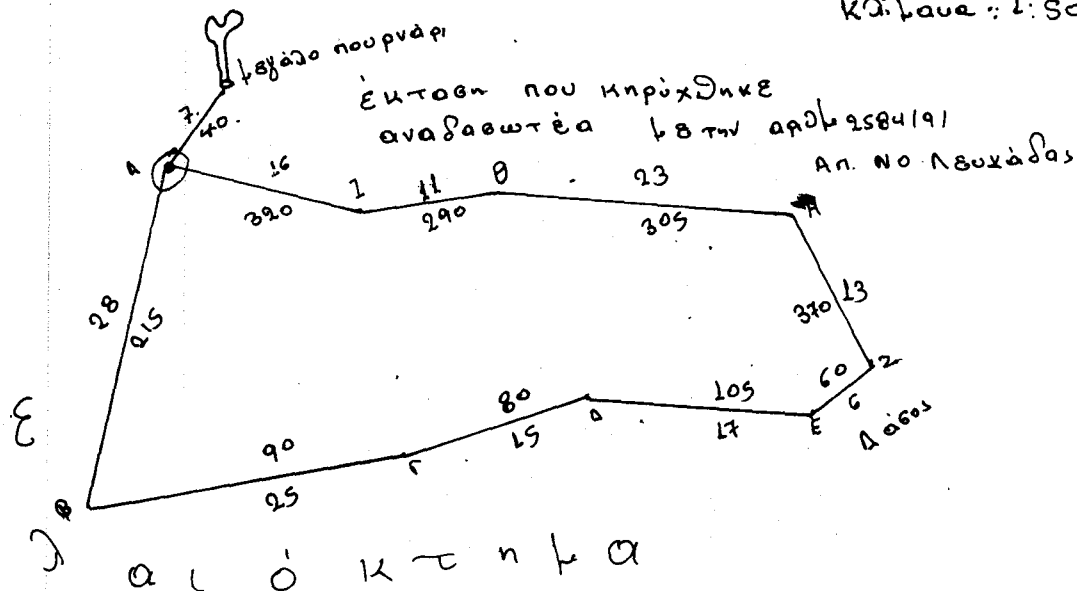 Κλίμακα : 1:50
μεγάλο πουρνάρι
7.
40.
έκταση που κηρύχθηκε
αναδασωτέα με την αριθμ 2584/91
Απ. ΝΟ Λευκάδας
Α
16
320
Ι
11
290
Θ
23
305
Η
28
215
370
13
Ζ
60
6
Ε
Δάσος
105
17
Δ
80
15
Γ
90
25
Β
ελαιόκτημα